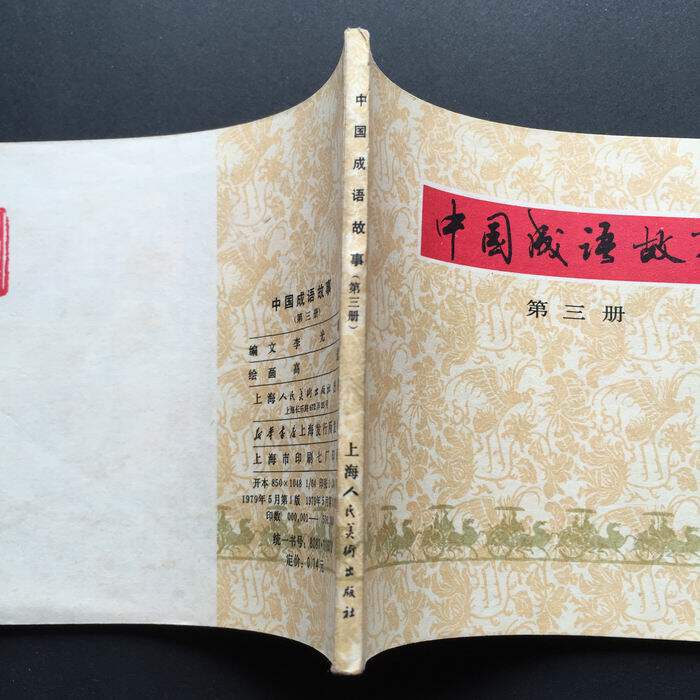 中国成语故
第三册
中国成语故事(第三册)
上海人民美术出版社
中国成语故事
(第三册)
编文 李光
绘画 高
上海人民美术出版社
上海长乐路672弄33号
新华书店上海发行所
上海市印刷七厂印
开本 850×1048 1/64 印张
1979年5月第1版 1979年5月第
印数 000,001—
统一书号: 8081·
定价: 0.14元